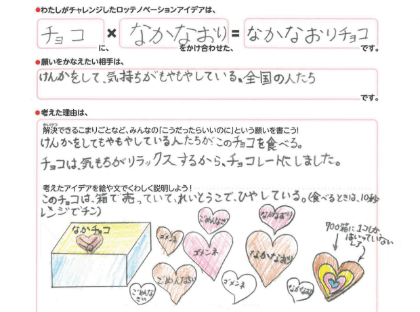 ●わたしがチャレンジしたロッテノベーションアイデアは、
チョコ × なかなおり = なかなおりチョコ
に、 をかけ合わせた、 です。
●願いをかなえたい相手は、
けんかをして、気持ちがもやもやしている。全国の人たち
です。
●考えた理由は、
解決できるこまりごとなど、みんなの「こうだったらいいのに」という願いを書こう!
けんかをしてもやもやしている人たちがこのチョコを食べる。
チョコは、気もちがリラックスするから、チョコレートにしました。
考えたアイデアを絵や文でくわしく説明しよう!
このチョコは、箱で売っていて、れいとうこで、ひやしている。(食べるときは、10秒
レンジでチン)
なかチョコ
ゴメンネ
ごめんなさい
なかなおり
ゴメンネ
なかなおり
ごめんなさい
ごめんなさい
ゴメンネ
なかなおり
900箱に1コしか
はいっていない
レア